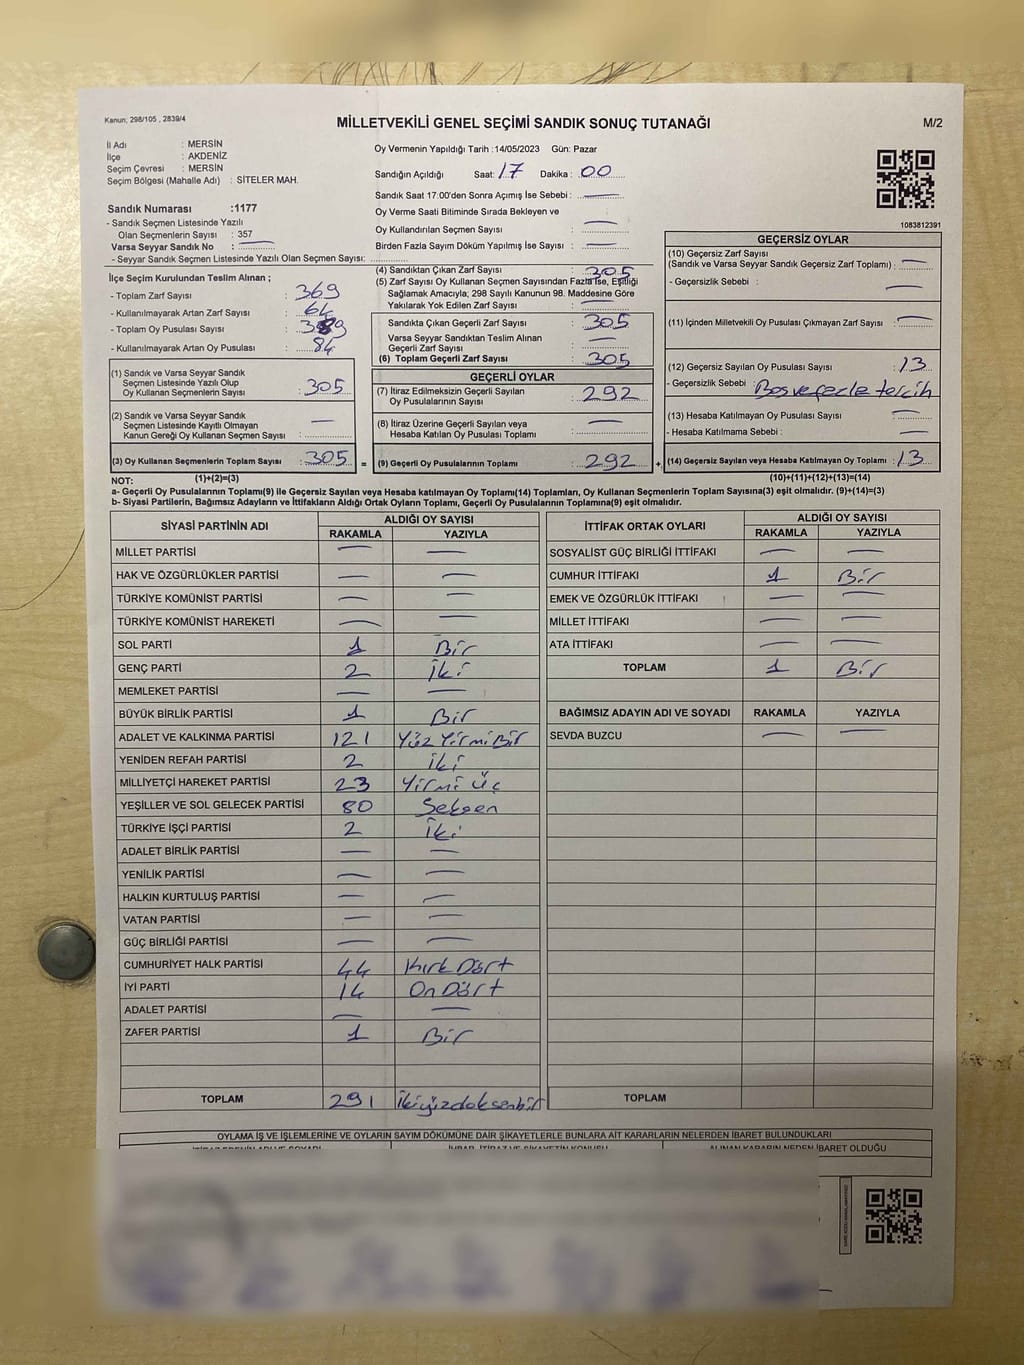 Kanun; 298/105 , 2839/4
MİLLETVEKİLİ GENEL SEÇİMİ SANDIK SONUÇ TUTANAĞI
M/2
İl Adı : MERSİN
İlçe : AKDENİZ
Seçim Çevresi : MERSİN
Seçim Bölgesi (Mahalle Adı) : SİTELER MAH.
Sandık Numarası :1177
- Sandık Seçmen Listesinde Yazılı
Olan Seçmenlerin Sayısı : 357
Varsa Seyyar Sandık No : —
- Seyyar Sandık Seçmen Listesinde Yazılı Olan Seçmen Sayısı:
Oy Vermenin Yapıldığı Tarih :14/05/2023 Gün: Pazar
Sandığın Açıldığı Saat: 17 Dakika : 00
Sandık Saat 17:00'den Sonra Açımış İse Sebebi : —
Oy Verme Saati Bitiminde Sırada Bekleyen ve
Oy Kullandırılan Seçmen Sayısı : —
Birden Fazla Sayım Döküm Yapılmış İse Sayısı : —
1083812391
İlçe Seçim Kurulundan Teslim Alınan ;
- Toplam Zarf Sayısı : 369
- Kullanılmayarak Artan Zarf Sayısı : 64
- Toplam Oy Pusulası Sayısı : 389
- Kullanılmayarak Artan Oy Pusulası : 84
(1) Sandık ve Varsa Seyyar Sandık
Seçmen Listesinde Yazılı Olup
Oy Kullanan Seçmenlerin Sayısı : 305
(2) Sandık ve Varsa Seyyar Sandık
Seçmen Listesinde Kayıtlı Olmayan
Kanun Gereği Oy Kullanan Seçmen Sayısı : —
(3) Oy Kullanan Seçmenlerin Toplam Sayısı : 305 =
(4) Sandıktan Çıkan Zarf Sayısı : 305
(5) Zarf Sayısı Oy Kullanan Seçmen Sayısından Fazla İse, Eşitliği
Sağlamak Amacıyla; 298 Sayılı Kanunun 98. Maddesine Göre
Yakılarak Yok Edilen Zarf Sayısı : —
Sandıkta Çıkan Geçerli Zarf Sayısı : 305
Varsa Seyyar Sandıktan Teslim Alınan
Geçerli Zarf Sayısı : —
(6) Toplam Geçerli Zarf Sayısı : 305
GEÇERLİ OYLAR
(7) İtiraz Edilmeksizin Geçerli Sayılan
Oy Pusulalarının Sayısı : 292
(8) İtiraz Üzerine Geçerli Sayılan veya
Hesaba Katılan Oy Pusulası Toplamı : —
(9) Geçerli Oy Pusulalarının Toplamı : 292 +
GEÇERSİZ OYLAR
(10) Geçersiz Zarf Sayısı
(Sandık ve Varsa Seyyar Sandık Geçersiz Zarf Toplamı) : —
- Geçersizlik Sebebi : —
(11) İçinden Milletvekili Oy Pusulası Çıkmayan Zarf Sayısı : —
(12) Geçersiz Sayılan Oy Pusulası Sayısı : 13
- Geçersizlik Sebebi : Boş ve fazla tercih
(13) Hesaba Katılmayan Oy Pusulası Sayısı : —
- Hesaba Katılmama Sebebi : —
(14) Geçersiz Sayılan veya Hesaba Katılmayan Oy Toplamı : 13
NOT: (1)+(2)=(3) (10)+(11)+(12)+(13)=(14)
a- Geçerli Oy Pusulalarının Toplamı(9) ile Geçersiz Sayılan veya Hesaba katılmayan Oy Toplamı(14) Toplamları, Oy Kullanan Seçmenlerin Toplam Sayısına(3) eşit olmalıdır. (9)+(14)=(3)
b- Siyasi Partilerin, Bağımsız Adayların ve İttifakların Aldığı Ortak Oyların Toplamı, Geçerli Oy Pusulalarının Toplamına(9) eşit olmalıdır.
SİYASİ PARTİNİN ADI ALDIĞI OY SAYISI
RAKAMLA YAZIYLA
MİLLET PARTİSİ — —
HAK VE ÖZGÜRLÜKLER PARTİSİ — —
TÜRKİYE KOMÜNİST PARTİSİ — —
TÜRKİYE KOMÜNİST HAREKETİ — —
SOL PARTİ 1 Bir
GENÇ PARTİ 2 İki
MEMLEKET PARTİSİ — —
BÜYÜK BİRLİK PARTİSİ 1 Bir
ADALET VE KALKINMA PARTİSİ 121 Yüz Yirmi Bir
YENİDEN REFAH PARTİSİ 2 İki
MİLLİYETÇİ HAREKET PARTİSİ 23 Yirmi üç
YEŞİLLER VE SOL GELECEK PARTİSİ 80 Seksen
TÜRKİYE İŞÇİ PARTİSİ 2 İki
ADALET BİRLİK PARTİSİ — —
YENİLİK PARTİSİ — —
HALKIN KURTULUŞ PARTİSİ — —
VATAN PARTİSİ — —
GÜÇ BİRLİĞİ PARTİSİ — —
CUMHURİYET HALK PARTİSİ 44 Kırk Dört
İYİ PARTİ 14 On Dört
ADALET PARTİSİ — —
ZAFER PARTİSİ 1 Bir
TOPLAM 291 ikiyüzdoksanbir
İTTİFAK ORTAK OYLARI ALDIĞI OY SAYISI
RAKAMLA YAZIYLA
SOSYALİST GÜÇ BİRLİĞİ İTTİFAKI — —
CUMHUR İTTİFAKI 1 Bir
EMEK VE ÖZGÜRLÜK İTTİFAKI — —
MİLLET İTTİFAKI — —
ATA İTTİFAKI — —
TOPLAM 1 Bir
BAĞIMSIZ ADAYIN ADI VE SOYADI RAKAMLA YAZIYLA
SEVDA BUZCU — —
TOPLAM
OYLAMA İŞ VE İŞLEMLERİNE VE OYLARIN SAYIM DÖKÜMÜNE DAİR ŞİKAYETLERLE BUNLARA AİT KARARLARIN NELERDEN İBARET BULUNDUKLARI
ALINAN KARARIN NEDEN İBARET OLDUĞU